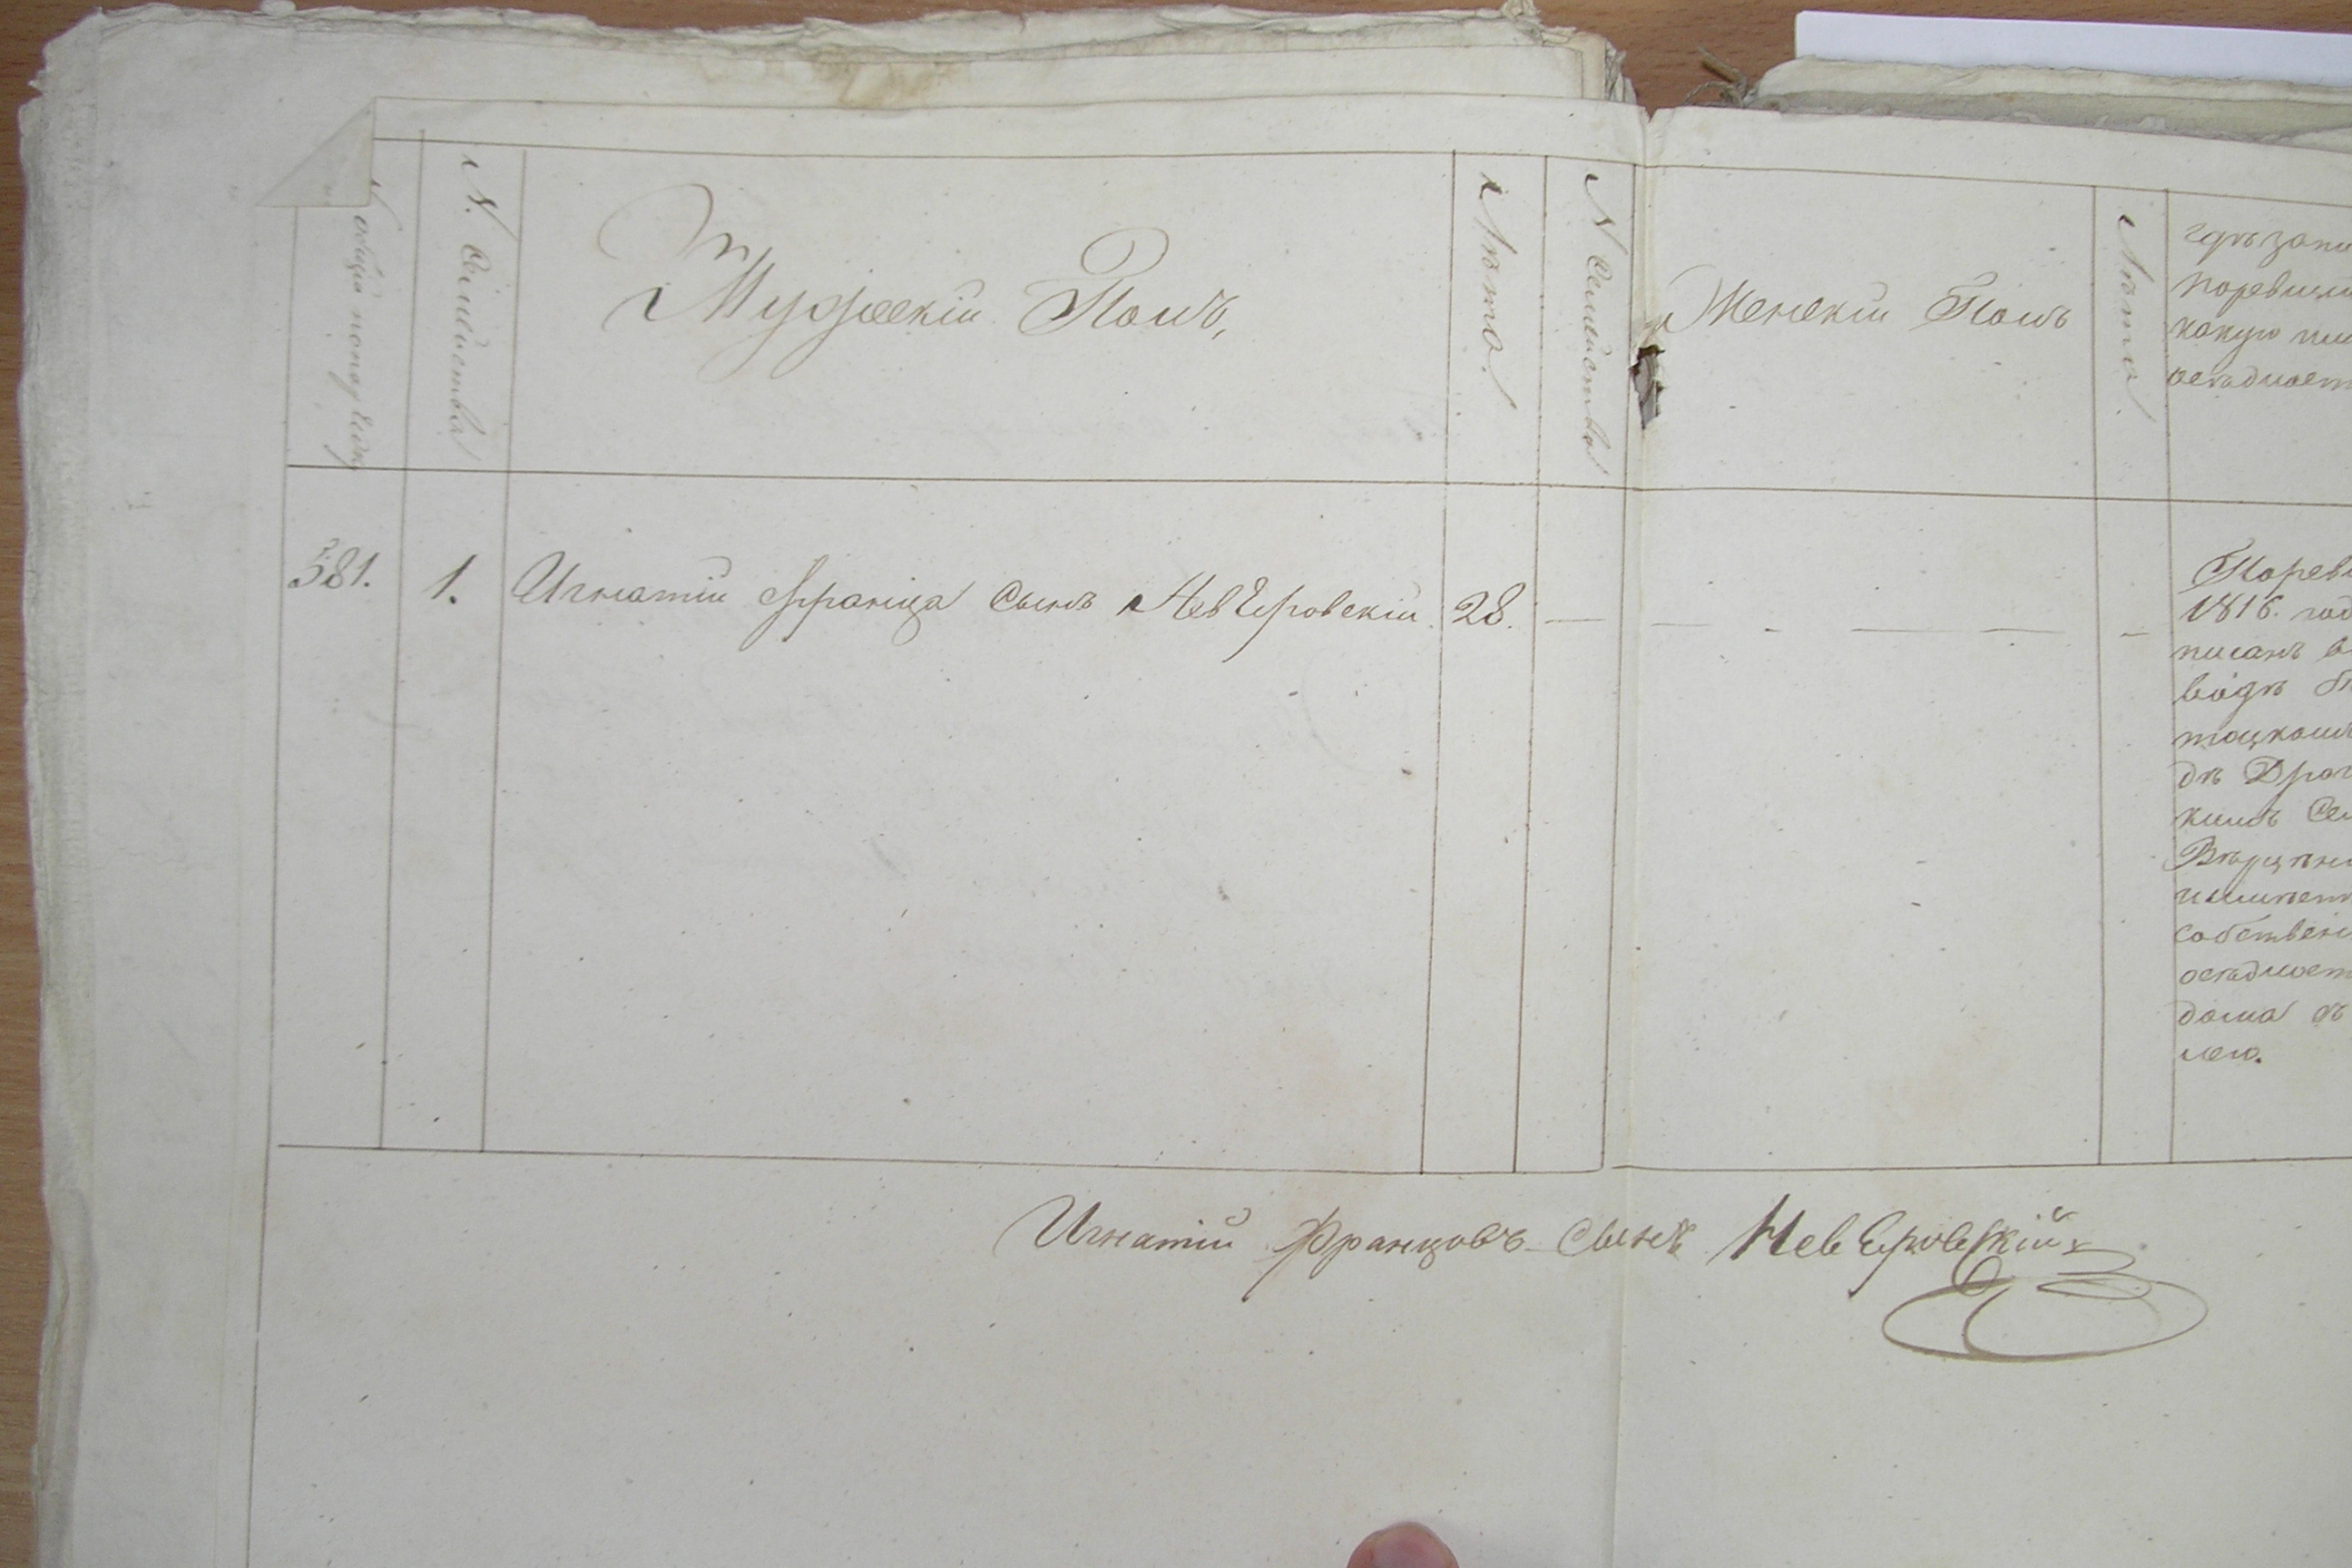 N общій по порядку
N. Семѣйства
Мужескій Полъ,
Лѣта.
N Семѣйства
Женскій Полъ
Лѣта
гдѣ запи
по ревизіи
какую им
осѣдлост
581. 1. Игнатій Франца Сынъ Невѣровскій. 28. — — - — — -
По реви
1816. год
писанъ в
водѣ
дѣ
кимъ
имѣет
собствен
осѣдлост
дома съ
лею.
Игнатій Францовъ Сынъ Невѣровскій